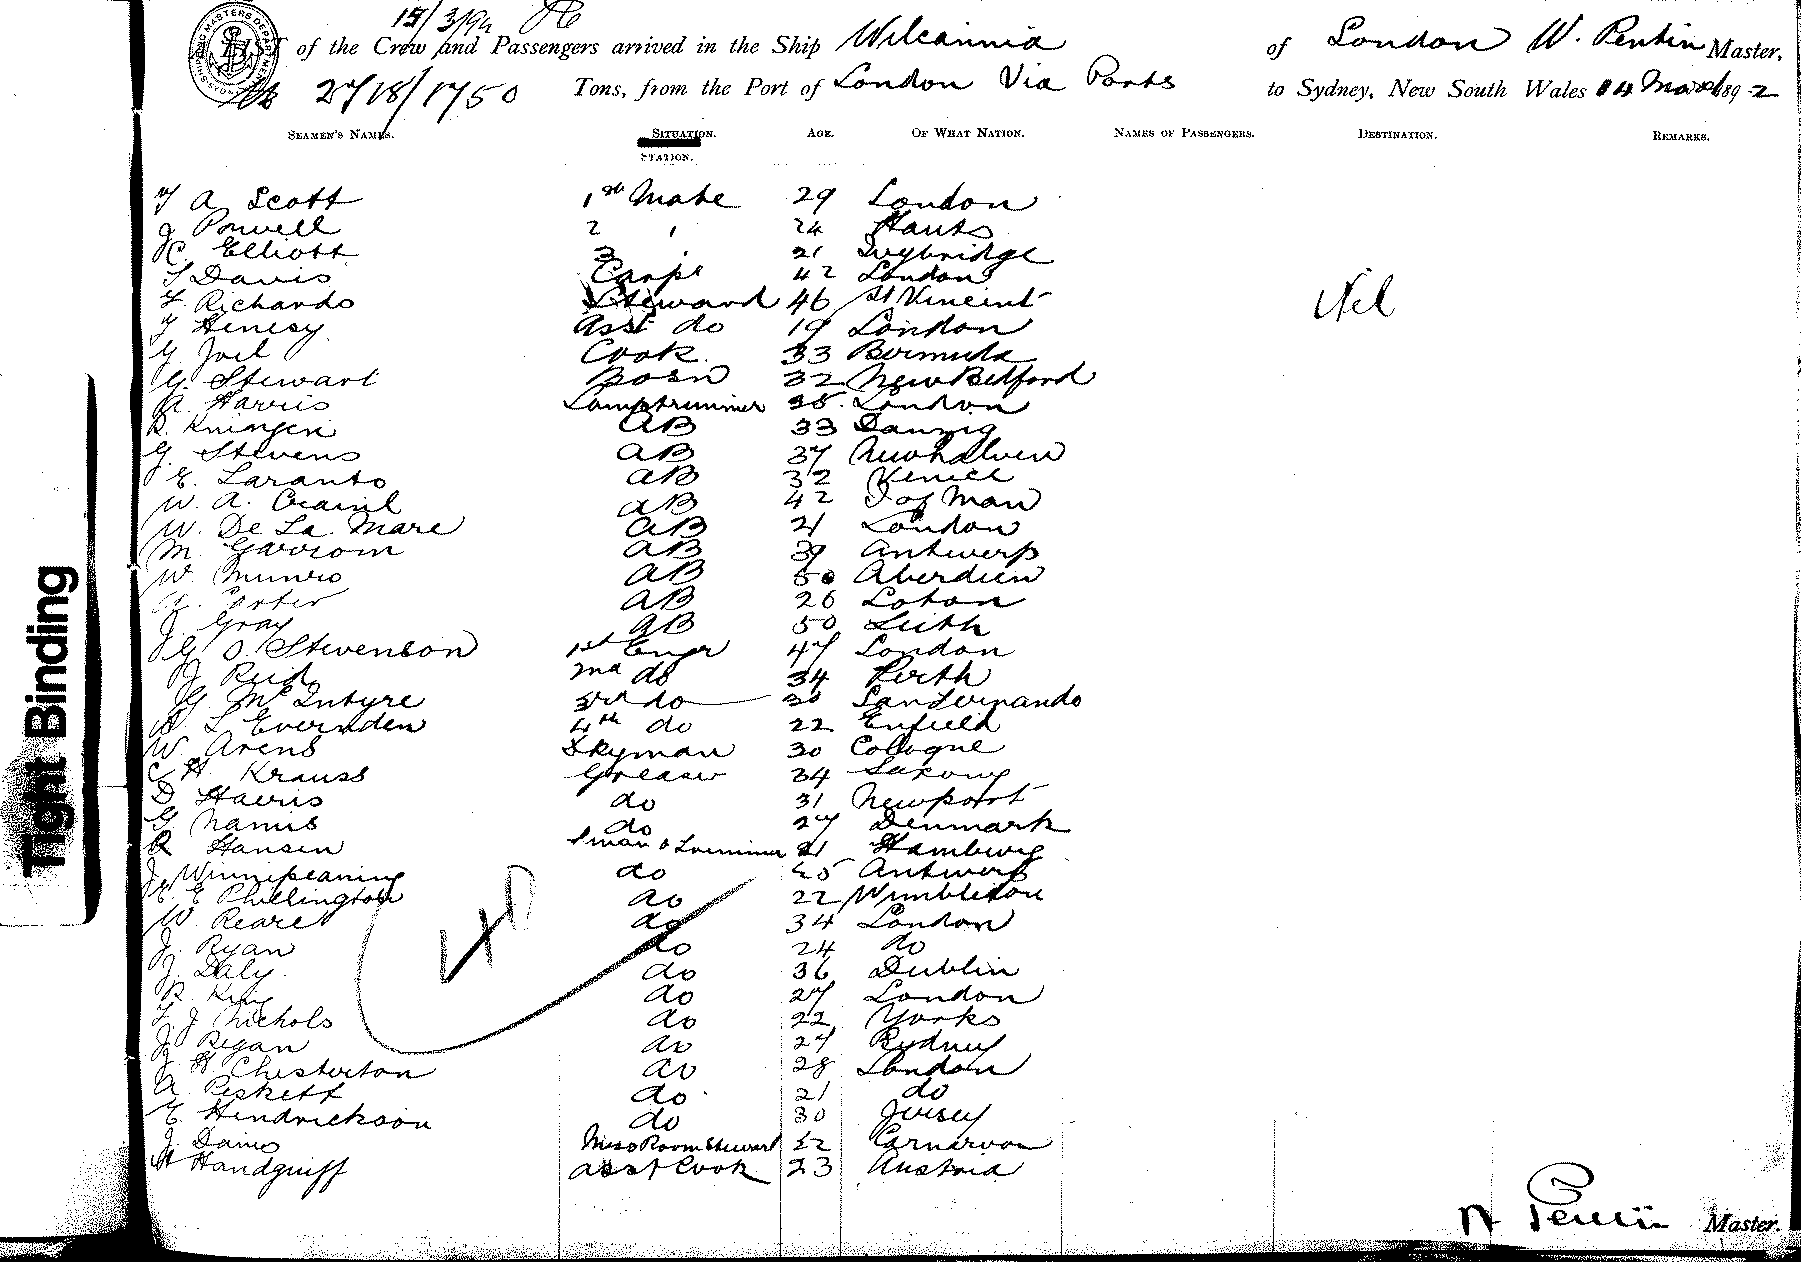 15/3/92
A LIST of the Crew and Passengers arrived in the Ship Wilcannia of London W. Pentin Master,
2718/1750 Tons, from the Port of London Via Ports to Sydney, New South Wales 14 March 1892
SEAMEN'S NAMES. SITUATION. AGE. OF WHAT NATION. NAMES OF PASSENGERS. DESTINATION. REMARKS.
STATION.
A Scott 1st Mate 29 London
J Powell 2 " 24 Hants
Elliott 3 " 21 Ivybridge
Davis Carpr 42 London
F. Richards Steward 46 St Vincent
Nil
Henesy Asst do 19 London
G. Joel Cook 33 Bermuda
G. Stewart Bosn 32 New Bedford
A. Harris Lamptrimmer 38 London
AB 33 Danzig
G. Stevens AB 37 Newhaven
E. Laranto AB 32 Venice
W. A. AB 42 I of Man
W. De La Mare AB 21 London
M. AB 39 Antwerp
W. Munro AB 50 Aberdeen
AB 26
J. Gray AB 50 Leith
G O. Stevenson 1st Engr 47 London
J Reid 2nd do 34 Perth
G. McIntyre 3rd do 30 San Fernando
L Evernden 4th do 22 Enfield
W. Arens Dkyman 30 Cologne
H Krauss Greaser 34 Saxony
D Harris do 31 Newport
G do 27 Denmark
R Hansen Fman & Trimmer 21 Hamburg
J. Winnipeaning do 25 Antwerp
E Phillington do 22 Wimbledon
W. do 34 London
J. Ryan do 24 do
J. Daly do 36 Dublin
King do 27 London
F. J Nichols do 22 Yorks
J Regan do 27 Sydney
J. H Chesterton do 28 London
A. Peskett do 21 do
E. Hendrickson do 30 Jersey
J. Messroom Steward 22 Carnarvon
H Handgriff asst Cook 23 Austria
W Pentin Master.
Tight Binding